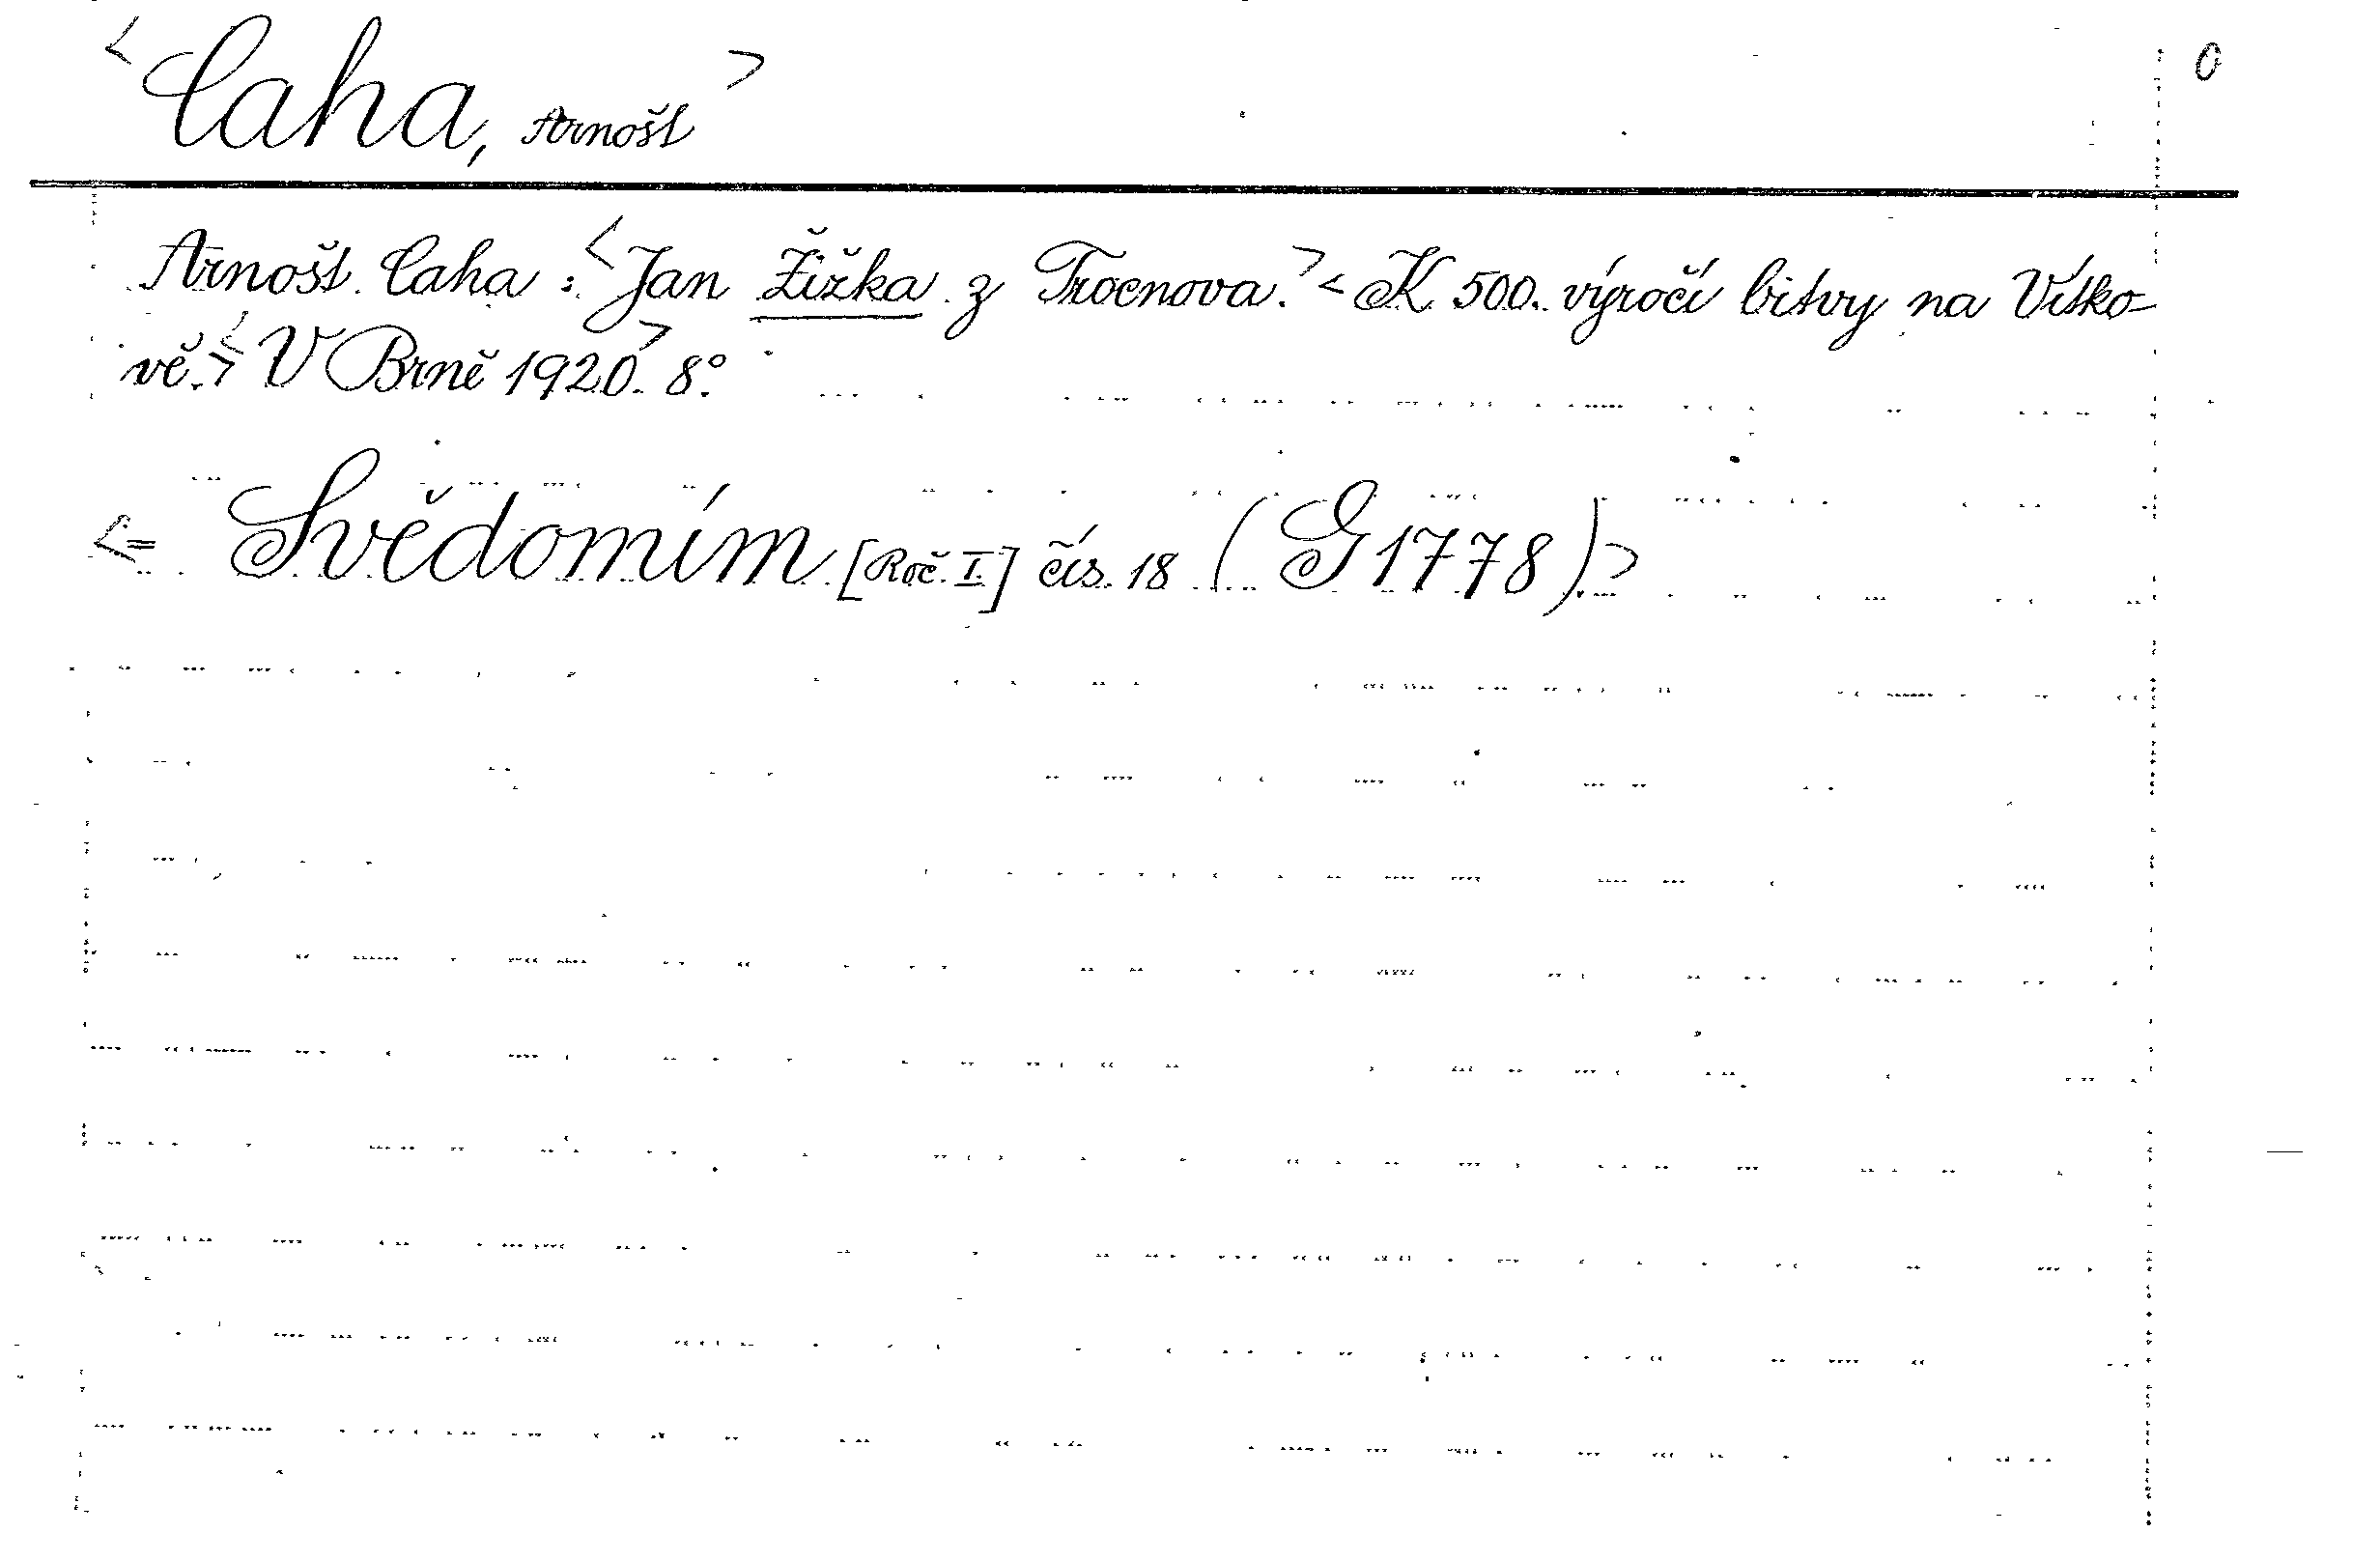 <Caha, Arnošt> O
Arnošt Caha: <Jan Žižka z Trocnova.> <K 500. výročí bitvy na Vítko-
vě.> <V Brně 1920> 8°.
<= Svědomím [Roč. I.] čís. 18 (G 1778).>